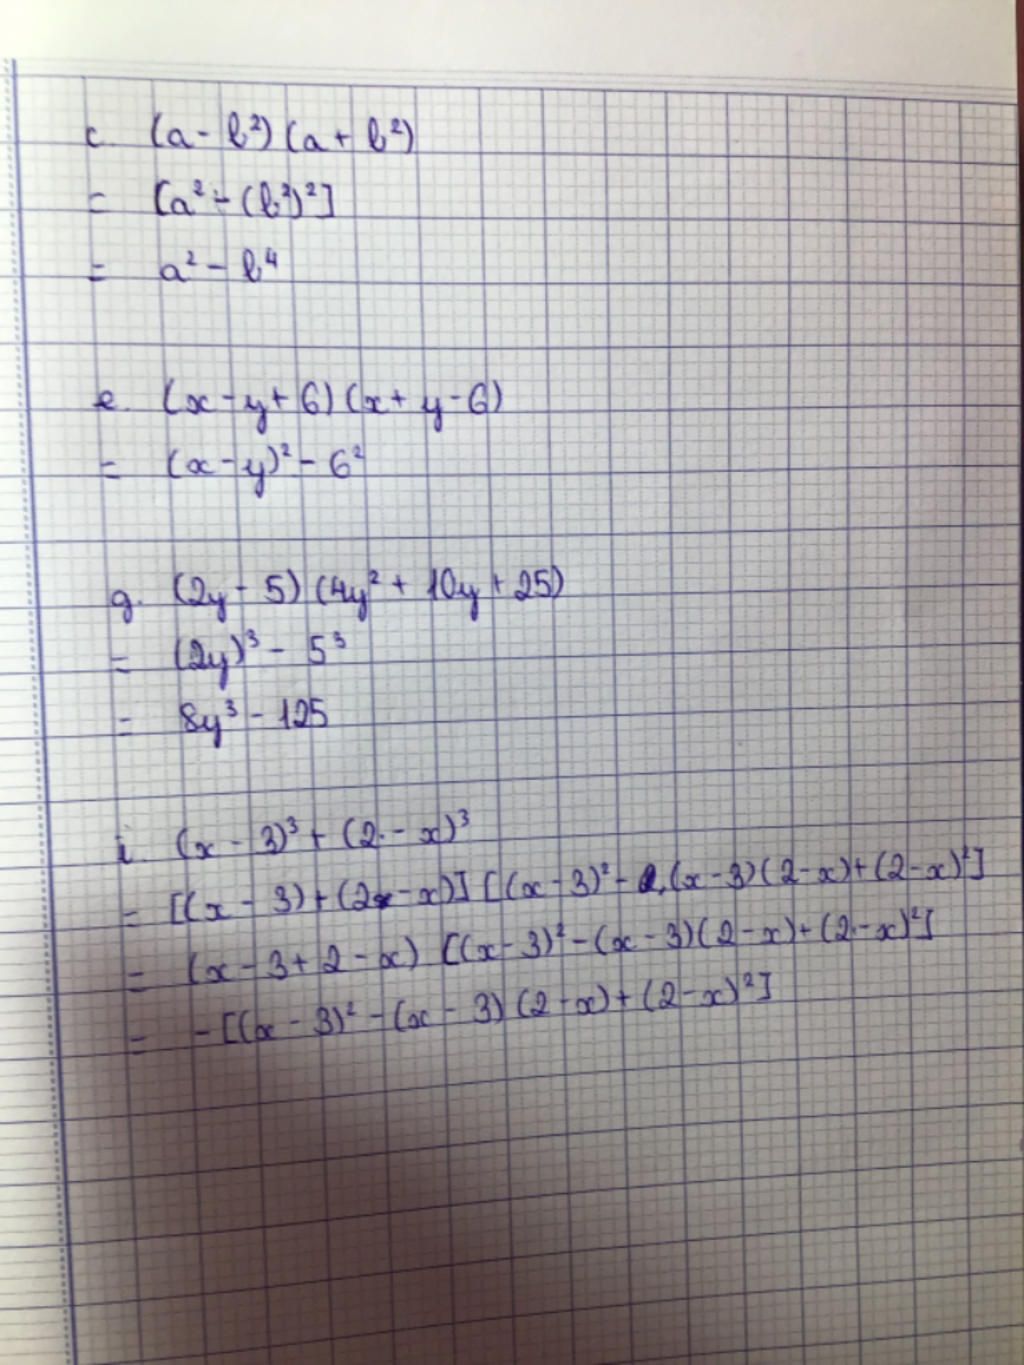 c. (a - b²)(a + b²)
= [a² - (b²)²]
= a² - b⁴
e. (x - y + 6)(x + y - 6)
= (x - y)² - 6²
g. (2y - 5)(4y² + 10y + 25)
= (2y)³ - 5³
= 8y³ - 125
i. (x - 3)³ + (2 - x)³
= [(x - 3) + (2 - x)][(x - 3)² - (x - 3)(2 - x) + (2 - x)²]
= (x - 3 + 2 - x) [(x - 3)² - (x - 3)(2 - x) + (2 - x)²]
= - [(x - 3)² - (x - 3)(2 - x) + (2 - x)²]